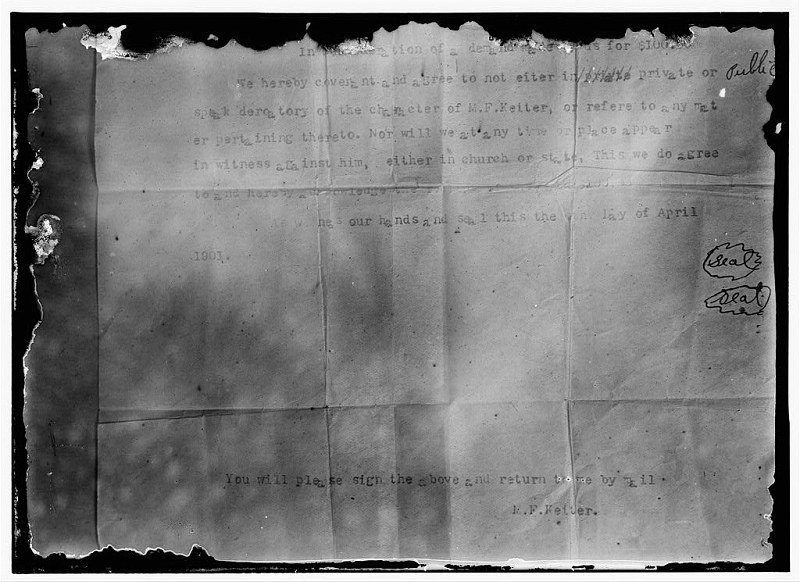 In of a demand for $100.
We hereby covenant and agree to not eiter in private private or Public
speak deroatory of the character of M.F.Keiter, or refere to any mat
er pertaining thereto. Nor will we at any time or place appear
in witness against him, either in church or state, This we do agree
to and hereby the
our hands and seal this the day of April
1901.
Seal
Seal
You will please sign the above and return to me by mail
M.F.Keiter.